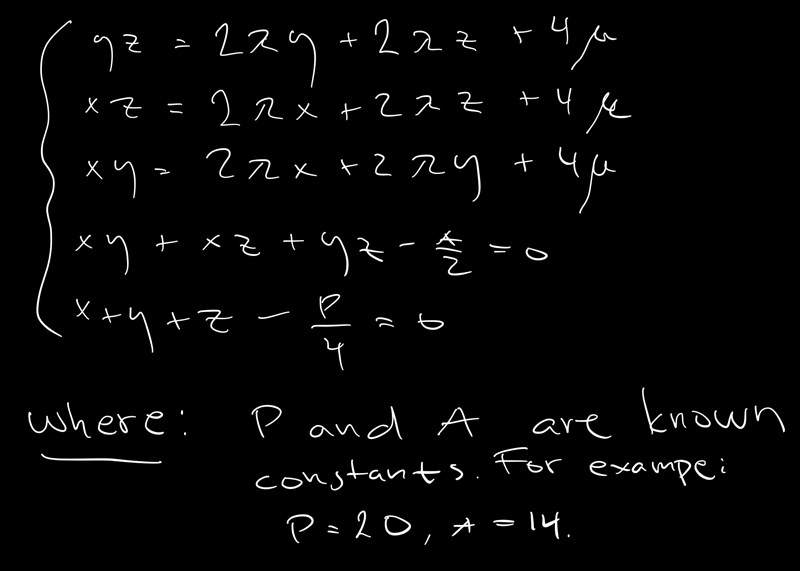 yz = 2λy + 2λz + 4μ
xz = 2λx + 2λz + 4μ
xy = 2λx + 2λy + 4μ
xy + xz + yz - A/2 = 0
x + y + z - P/4 = 0
where: P and A are known
constants. For exampe:
P = 20, A = 14.